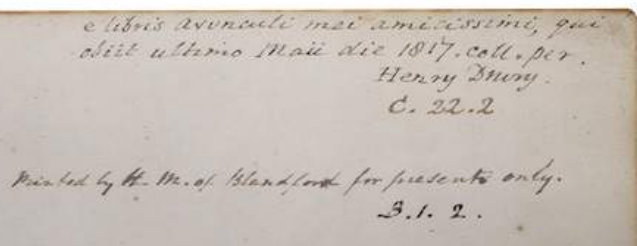 e libris avunculi mei amicissimi, qui
obiit ultimo Maii die 1817. coll. per.
Henry Drury.
C. 22.2
Printed by the M. of Blandford for presents only.
B. 1. 2.